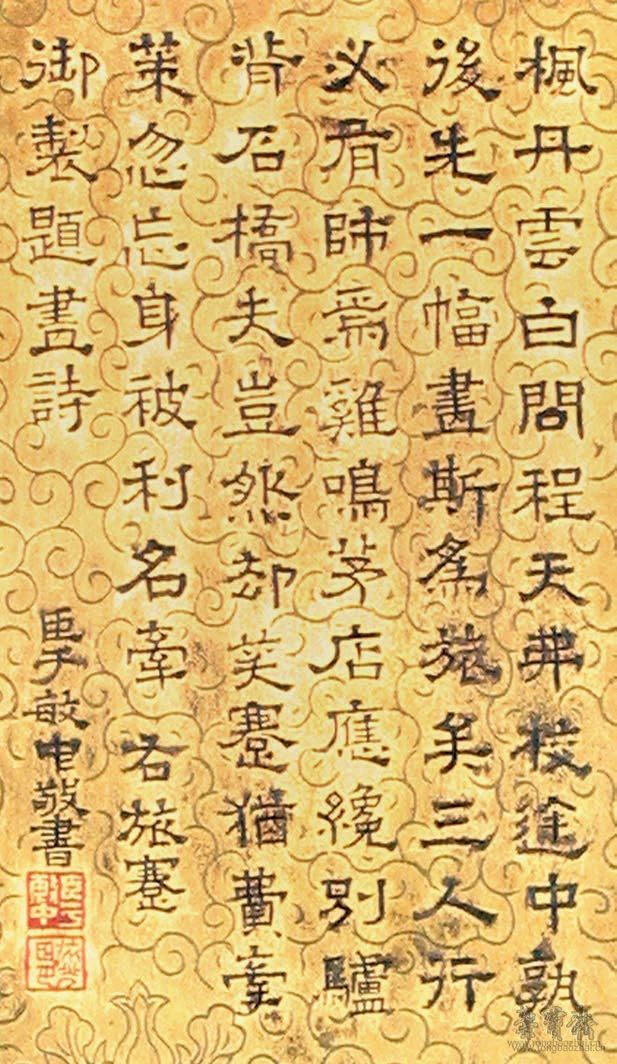 楓丹雲白問程天弗校途中孰
後先一幅畫斯為旅矣三人行
必有師焉雞鳴茅店應纔別驢
背石橋夫豈然却笑蹇猶費牽
策忽忘身被利名牽 右旅蹇
御製題畫詩
臣于敏中敬書
榮寶齋
www.rongbaozhai.cn